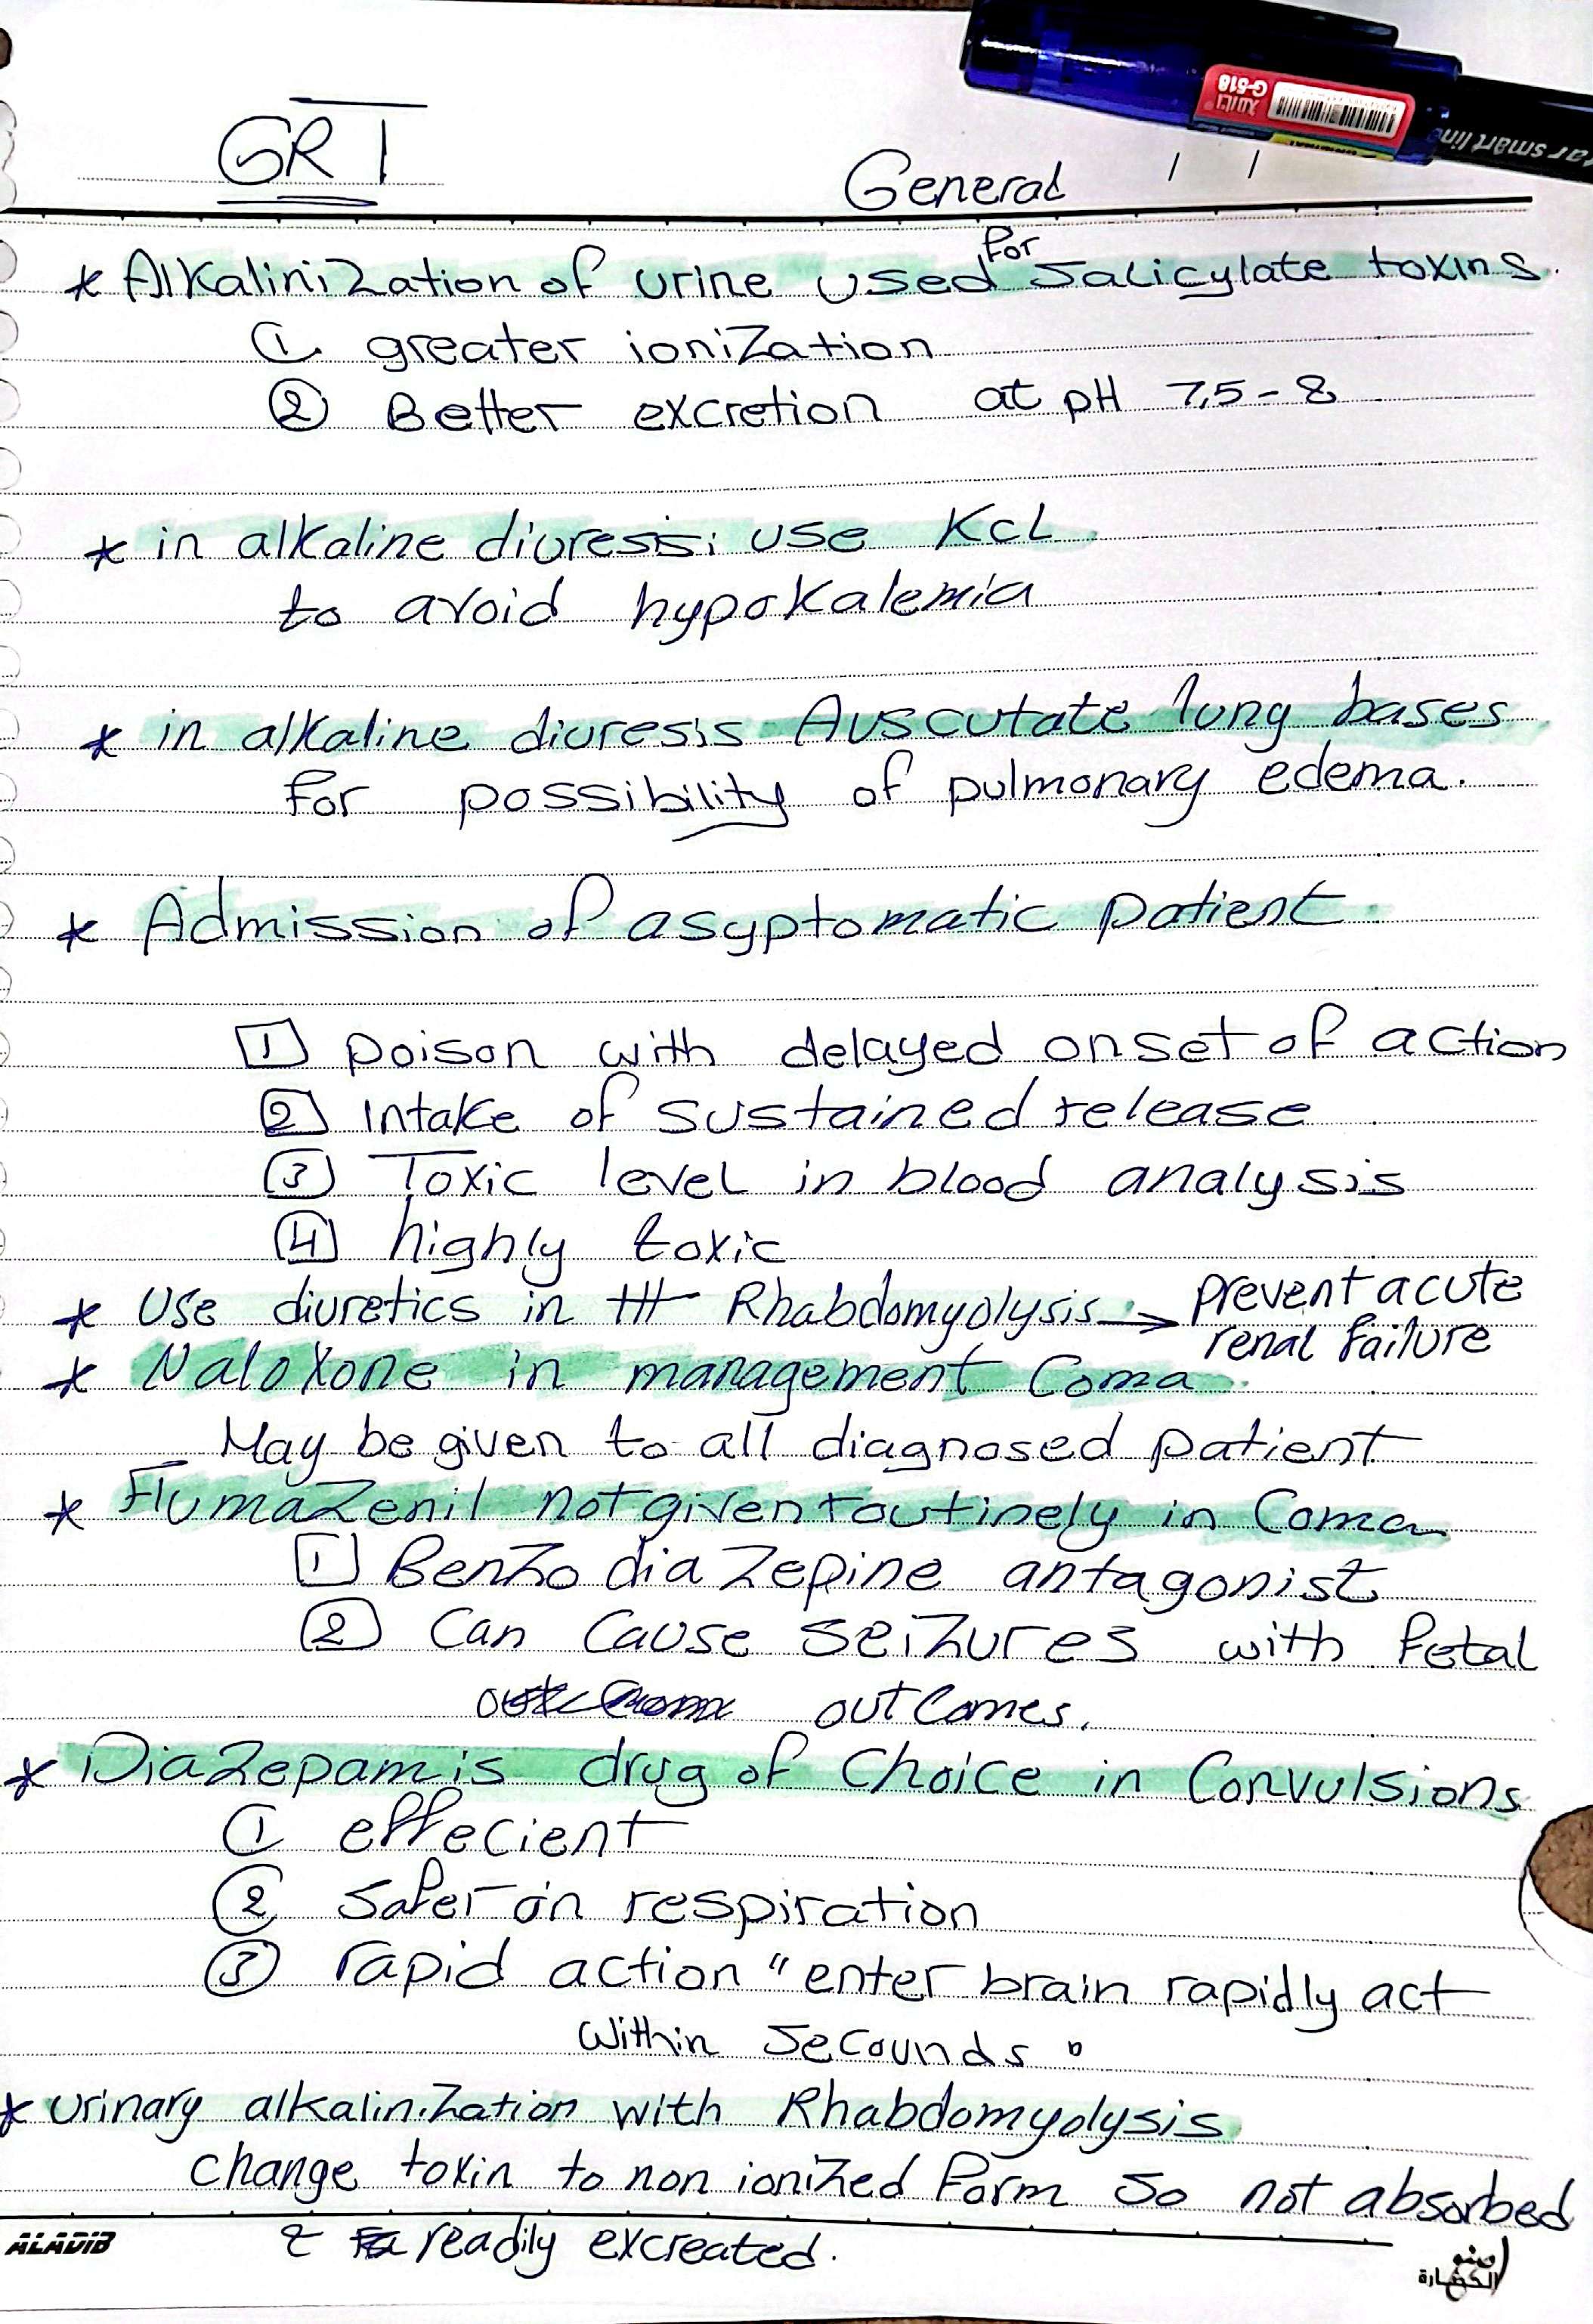 GR T
General / /
* Alkalinization of urine used for Salicylate toxins.
① greater ionization
② Better excretion at pH 7,5 - 8
* in alkaline diuresis: use KCL
to avoid hypokalemia
* in alkaline diuresis Auscutate lung bases
for possibility of pulmonary edema.
* Admission of asyptomatic patient.
1 poison with delayed onset of action
2 Intake of sustained release
3 Toxic level in blood analysis
4 highly toxic
* Use diuretics in ttt Rhabdomyolysis → prevent acute
renal failure
* Naloxone in management Coma.
May be given to all diagnosed patient
* Flumazenil not given routinely in Coma
1 Benzodiazepine antagonist
2 Can Cause seizures with fetal
outcomes.
* Diazepam is drug of Choice in Convulsions
① effecient
② safer on respiration
③ rapid action "enter brain rapidly act
within secounds"
* urinary alkalinization with Rhabdomyolysis
change toxin to non ionized form so not absorbed
& readily excreated.
ALADIB
الحضارة
G-518
smart line